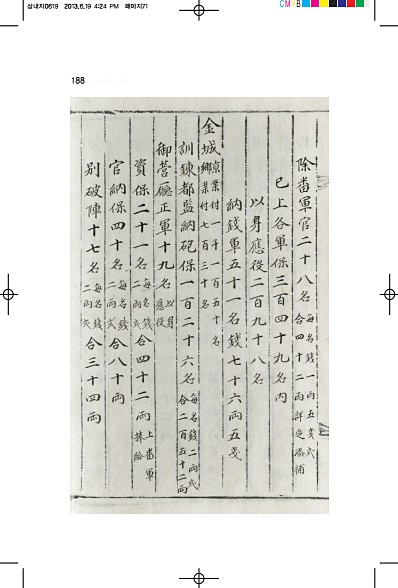 삼내지0619 2013.6.19 4:24 PM 페이지71
CMYB
188
除番軍官二十八名 每名錢一兩五戔式 合四十二兩詳定添補
已上各軍保三百四十九名內
以身應役二百九十八名
納錢軍五十一名錢七十六兩五戔
金城 京案付一千一百五十名 鄉案付七百三十名
訓鍊都監納砲保一百二十六名 每名錢二兩式 合二百五十二兩
御營廳正軍十九名 以身應役
資保二十一名 每名錢二兩式 合四十二兩 上番軍
官納保四十名 每名錢二兩式 合八十兩
別破陣十七名 每名錢二兩式 合三十四兩